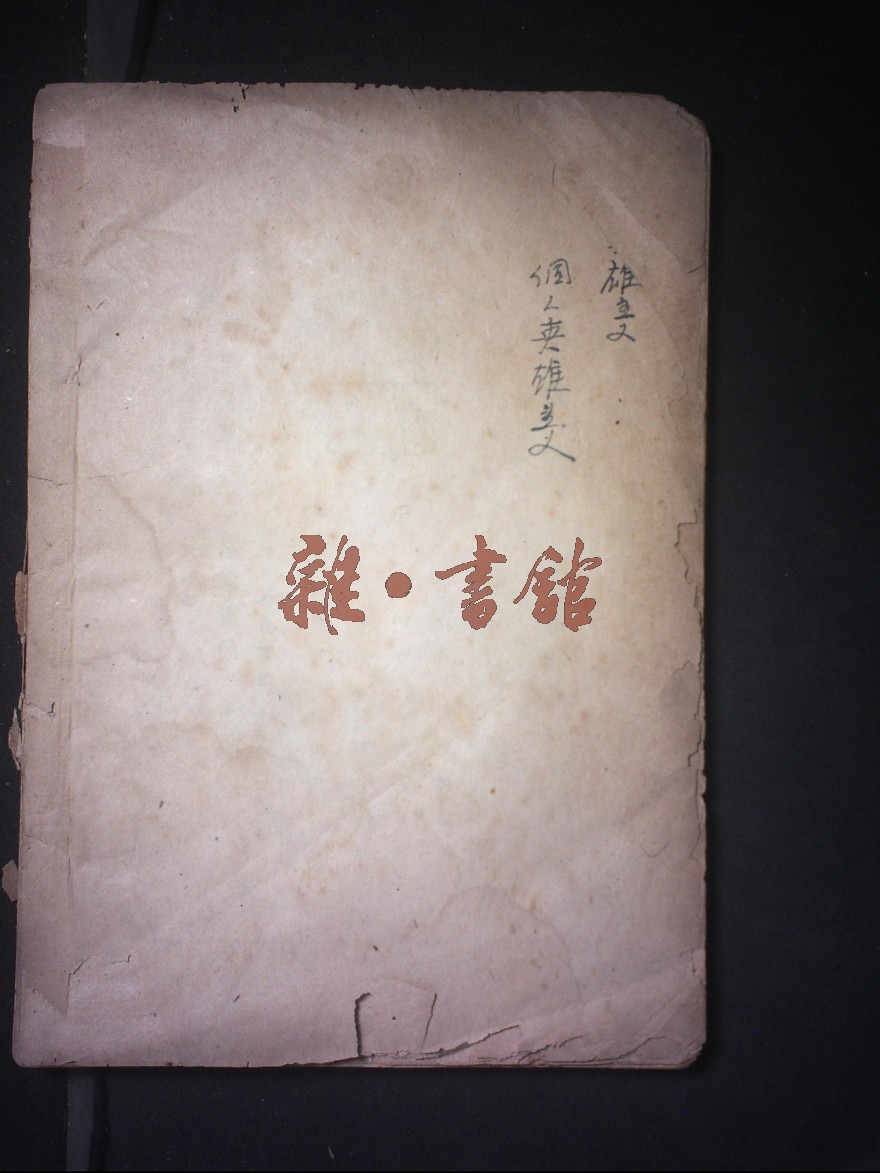 雄主义
個人英雄主义
雜·書館